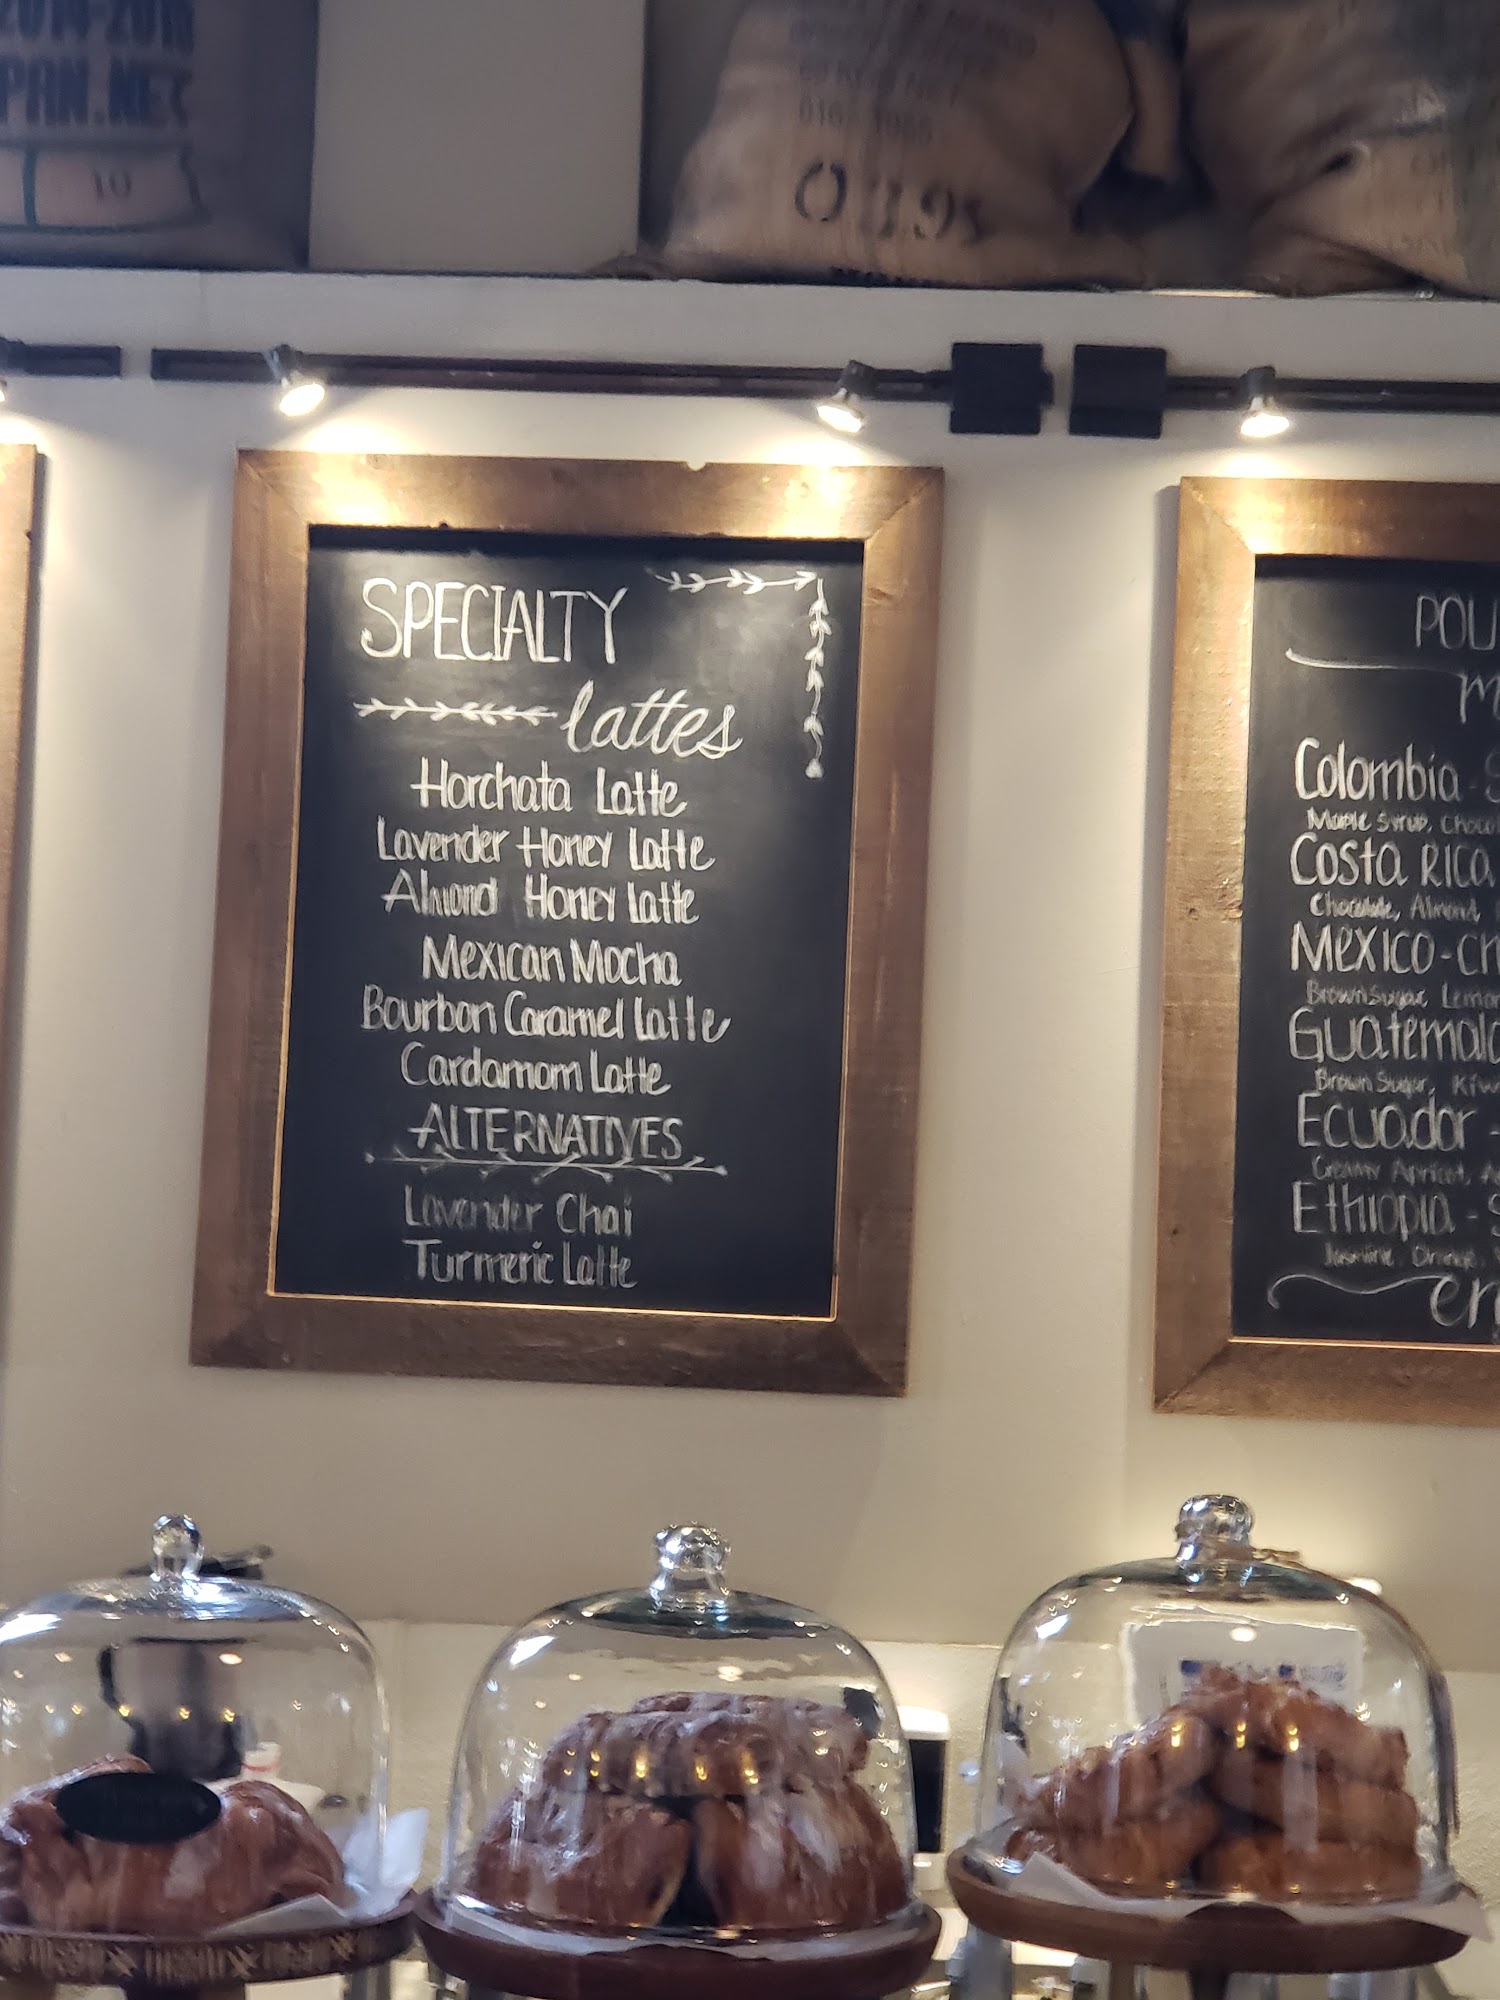 2014-201
PAN.NE
10
0.3.95
SPECIALTY
lattes
Horchata Latte
Lavender Honey Latte
Almond Honey Latte
Mexican Mocha
Bourbon Caramel Latte
Cardamom Latte
ALTERNATIVES
Lavender Chai
Turmeric Latte
POU
m
Colombia - S
Maple Syrup, Choco
Costa Rica
Chocolate, Almond,
Mexico - Ch
Brown Sugar, Lemon
Guatemala
Brown Sugar, Kiw
Ecuador -
Creamy Apricot, A
Ethiopia - S
Jasmine, Orange,
en